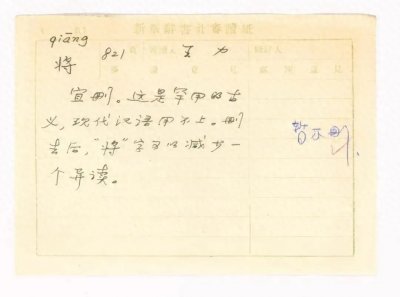 qiāng
将 821 王力
宜删。这是罕用的古
义,现代汉语用不上。删
去后,“将”字可以减少一
个异读。
暂不删